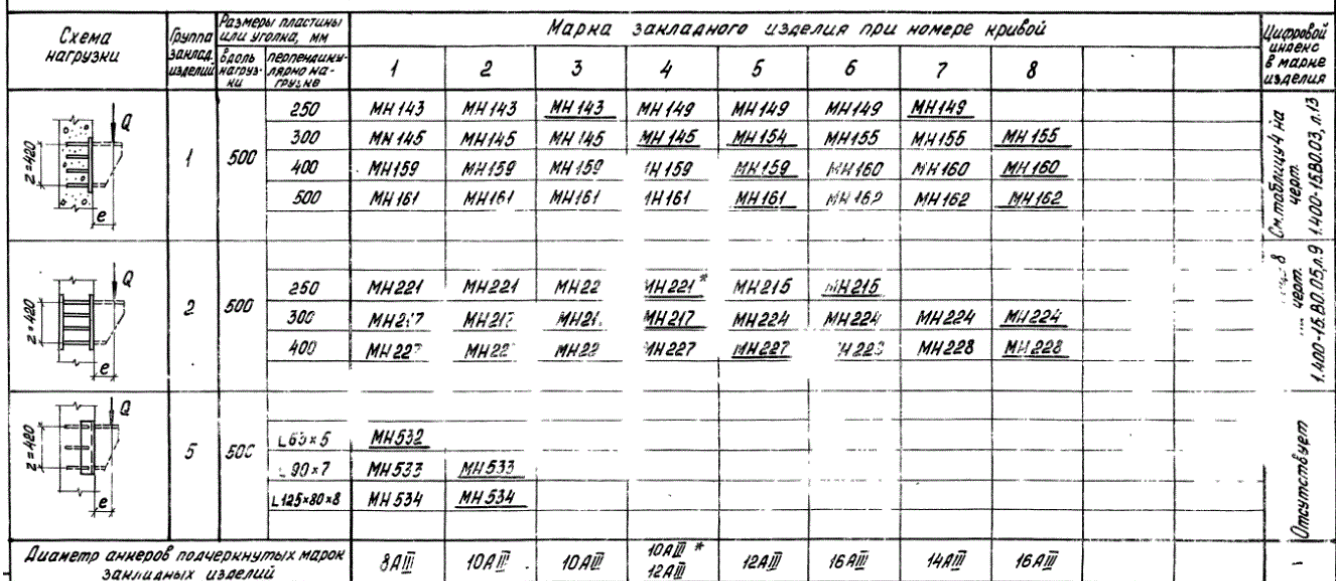 Схема нагрузки
Группа заклад. изделий
Размеры пластины или уголка, мм
вдоль нагрузки
перпендикулярно нагрузке
Марка закладного изделия при номере кривой
1 2 3 4 5 6 7 8
Цифровой индекс в марке изделия
Q
z=420
e
1
500
250 МН143 МН143 МН143 МН149 МН149 МН149 МН149
300 МН145 МН145 МН145 МН145 МН154 МН155 МН155 МН155
400 МН159 МН159 МН159 1Н159 МН159 МН160 МН160 МН160
500 МН161 МН161 МН161 1Н161 МН161 МН162 МН162 МН162
См. таблицу 4 на
черт.
1.400-15.В0.03, л.13
Q
z=420
e
2
500
250 МН221 МН221 МН22 МН221* МН215 МН215
300 МН217 МН217 МН21. МН217 МН224 МН224 МН224 МН224
400 МН227 МН22 МН22 МН227 МН227 МН228 МН228
8
черт.
1.400-15.В0.05, л.9
Q
z=420
e
5
500
L63×5 МН532
90×7 МН533 МН533
L125×80×8 МН534 МН534
Отсутствует
Диаметр анкеров подчеркнутых марок
закладных изделий
8АIII 10АIII 10АIII 10АIII* 12АIII 12АIII 16АIII 14АIII 16АIII –